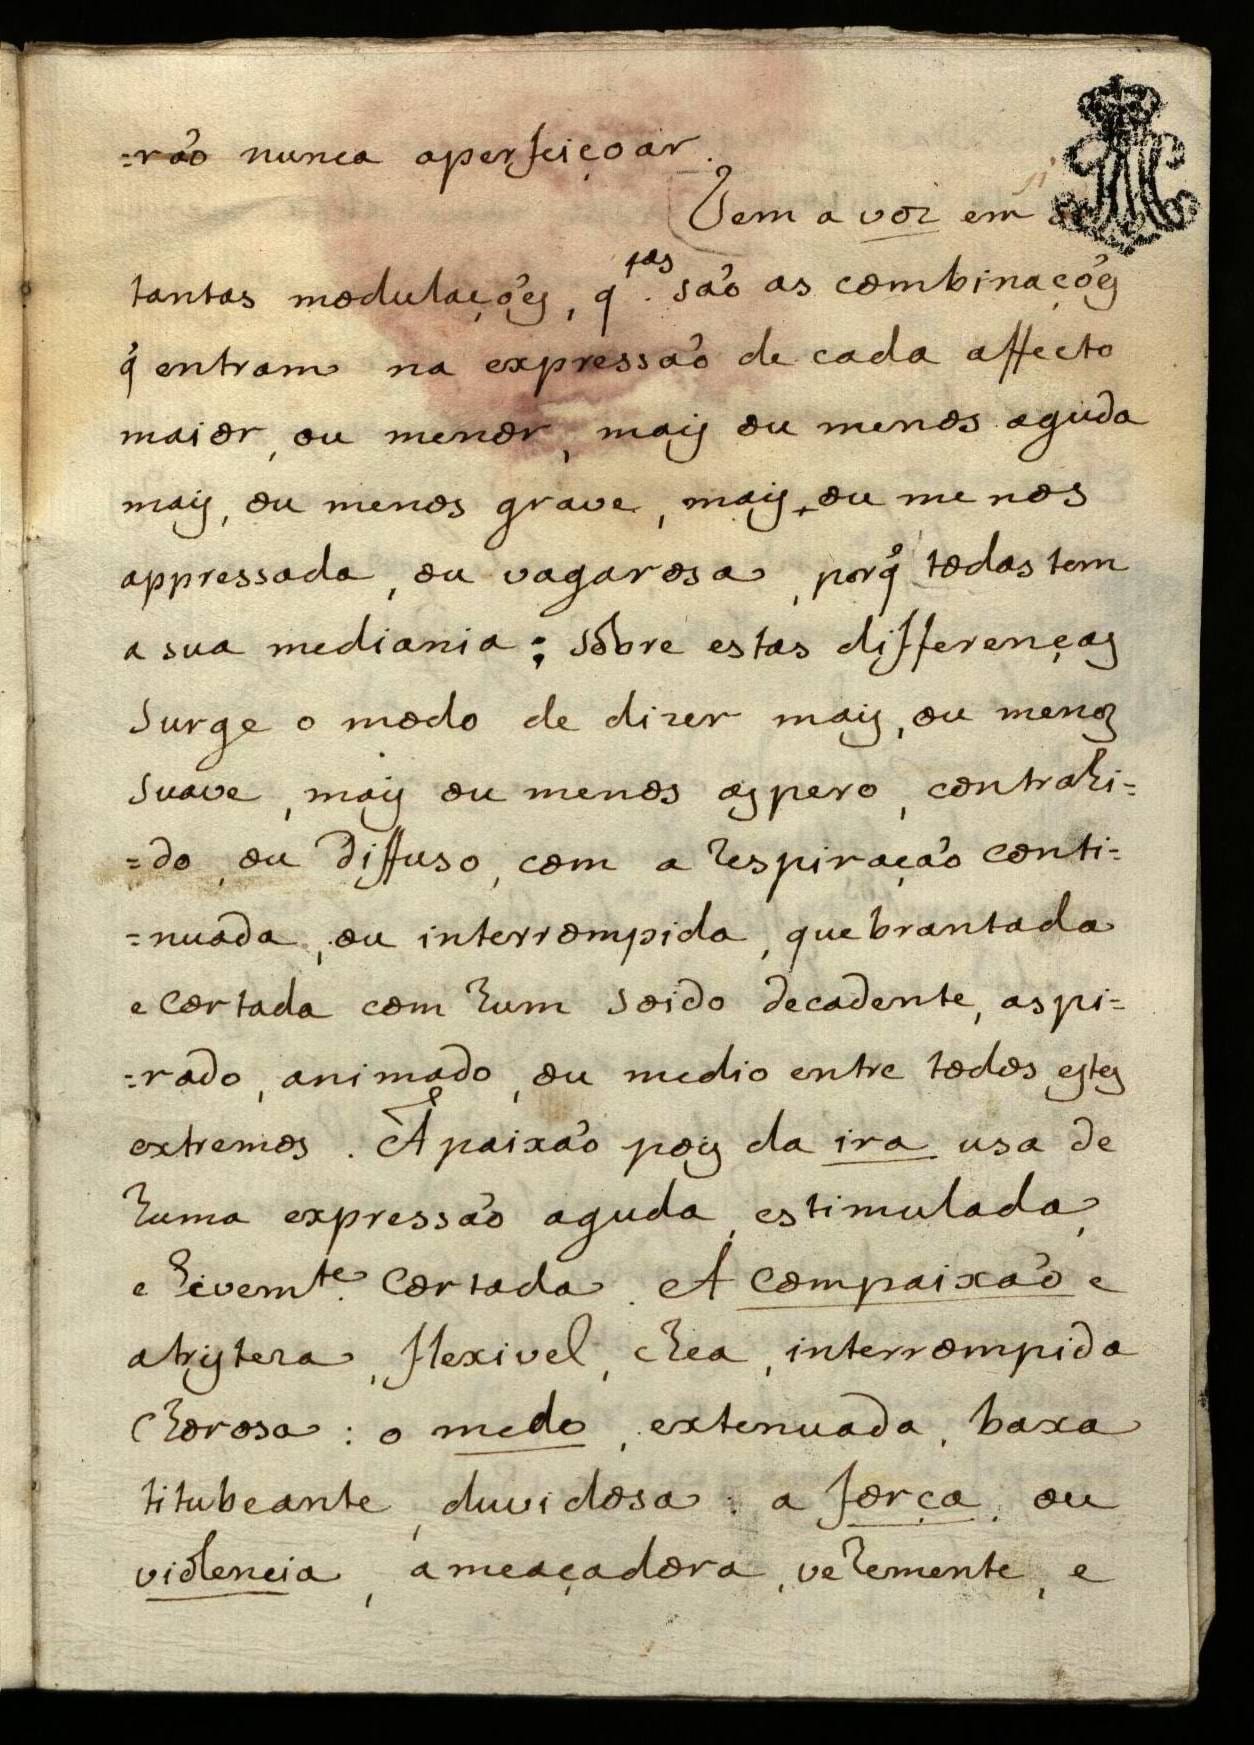 =rão nunca aperfeiçoar.
Tem a voz em si
tantas modulaçóẽs, q.tas são as combinaçóẽs
q̃ entram na expressaõ de cada affecto
maior, ou menor, mais ou menos aguda
mais, ou menos grave, mais, ou menos
appressada, ou vagarosa, porq̃ todas tem
a sua mediania; sóbre estas differenças
surge o modo de dizer mais, ou menos
suave, mais ou menos aspero, contrahi=
=do, ou diffuso, com a respiração conti=
=nuada, ou interrompida, quebrantada
e cortada com hum soido decadente, aspi=
=rado, animado, ou medio entre todos estes
extremos. A paixaõ pois da ira usa de
huma expressaõ aguda, estimulada,
e levemte. cortada. A compaixaõ e
a tristeza, flexivel, chea, interrompida
chorosa: o medo, extenuada, baxa
titubeante, duvidosa: a força, ou
violencia, ameaçadora, vehemente, e